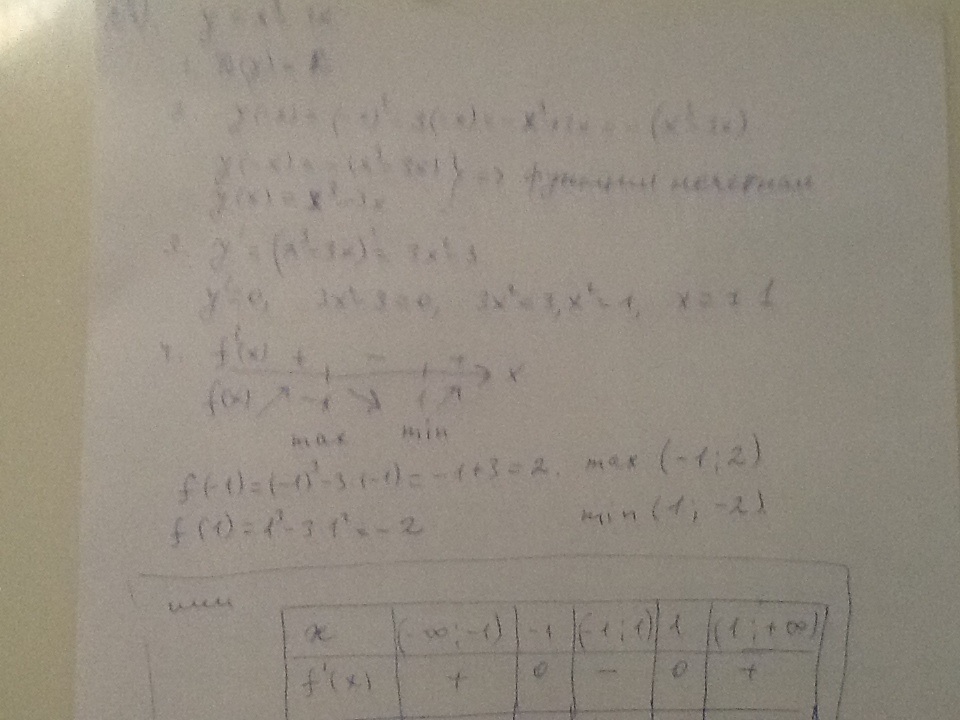 y = x³ - 3x
1. D(y) = R
2. y(-x) = (-x)³ - 3(-x) = -x³+3x = -(x³-3x)
y(-x) = -(x³-3x) } => функция нечетная
y(x) = x³-3x
3. y' = (x³-3x)' = 3x²-3
y'=0, 3x²-3=0, 3x²=3, x²=1, x=±1
4. f'(x) + - + x
f(x) ↗ -1 ↘ 1 ↗
max min
f(-1)=(-1)³-3·(-1)=-1+3=2. max (-1;2)
f(1)=1³-3·1²=-2 min (1;-2)
или
x (-∞;-1) -1 (-1;1) 1 (1;+∞)
f'(x) + 0 - 0 +